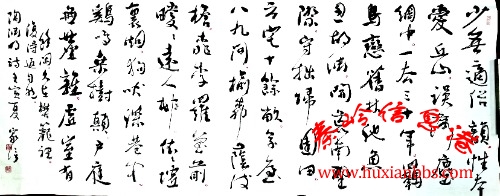 少無適俗韻性本
愛丘山誤落塵
網中一去三十年羈
鳥戀舊林池魚
思故淵開荒南野
際守拙歸園田
方宅十餘畝草屋
八九間榆柳蔭後
檐桃李羅堂前
曖曖遠人村依依墟
里煙狗吠深巷中
雞鳴桑樹顛戶庭
無塵雜虛室有
餘閒久在樊籠裡
復得返自然
陶淵明詩
www.huxianbbs.com